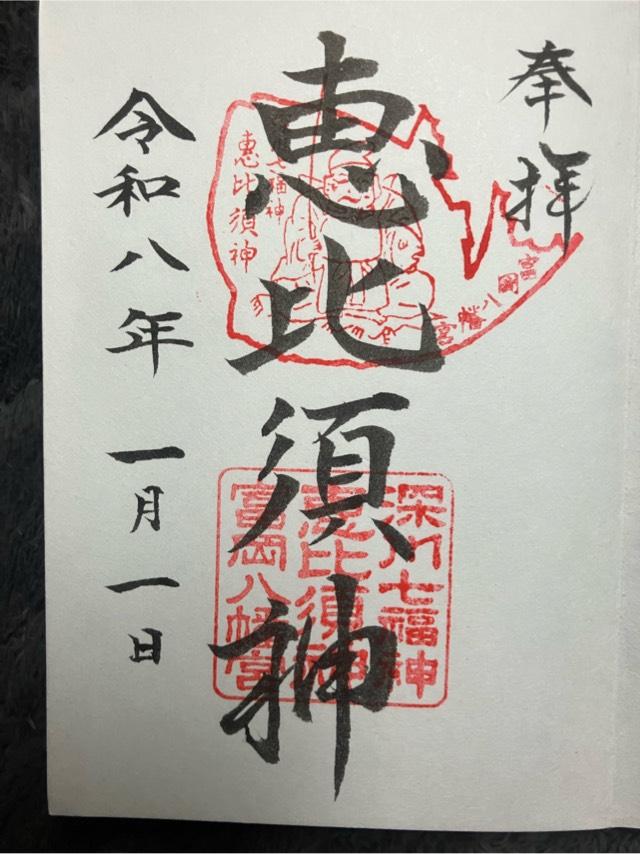 奉拝
恵比須神
令和八年 一月一日
七福神
恵比須神
富岡八幡宮
深川七福神
恵比須神
富岡八幡宮